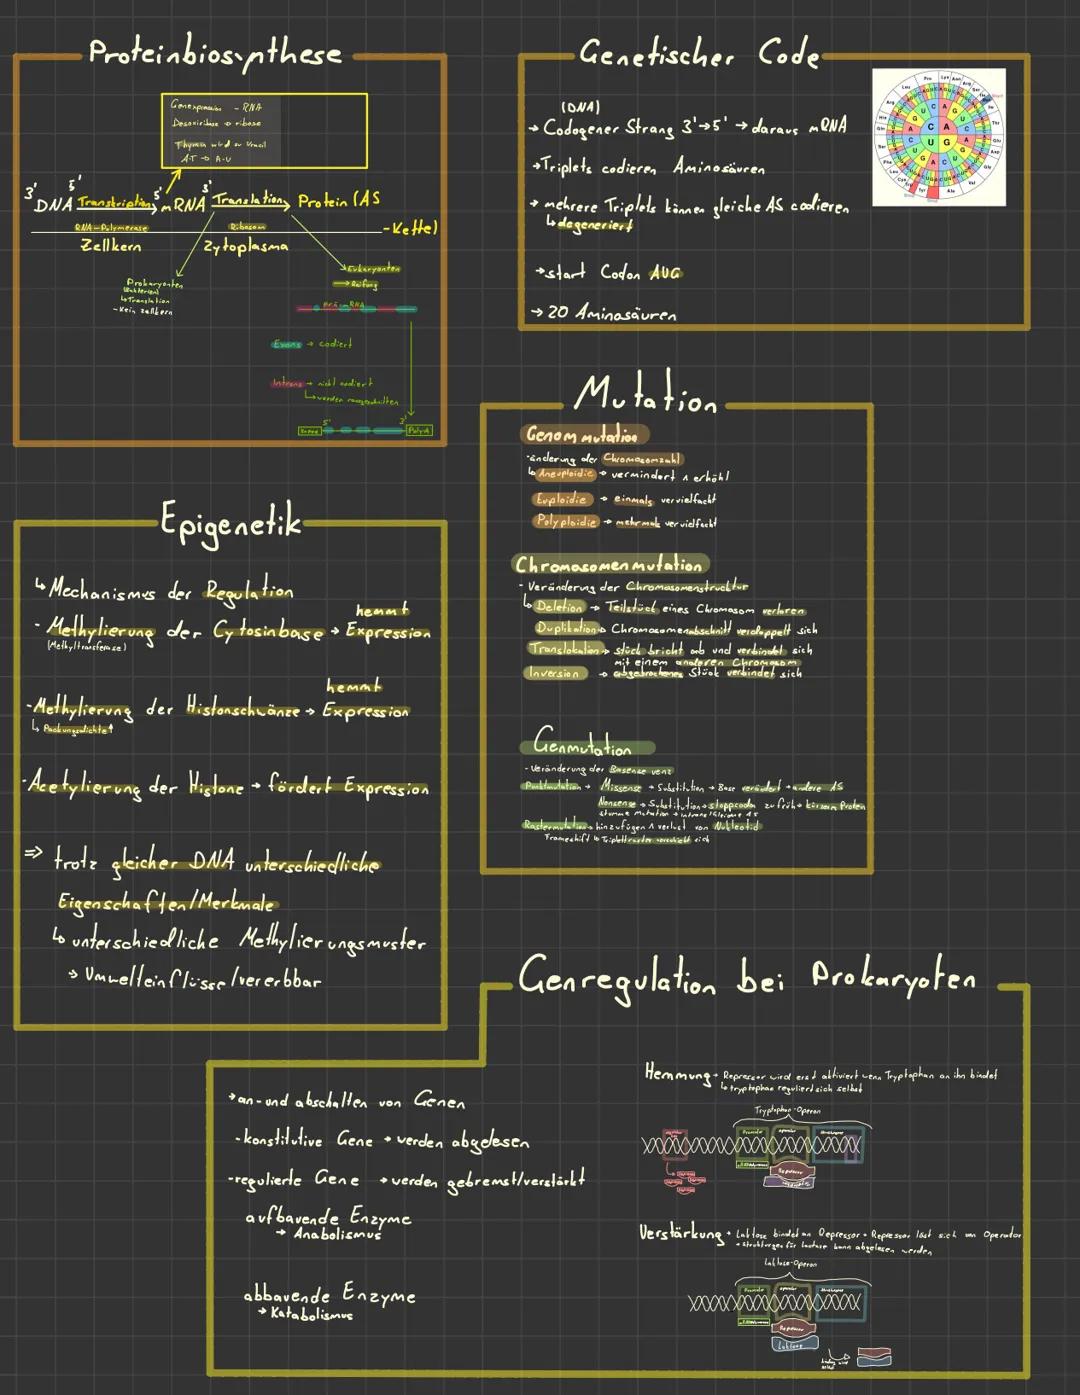 Proteinbiosynthese
Genexpression - RNA
Desoxiribose → ribose
Thymin wird zu Uracil
A-T → A-U
3' 5' 5' 3'
DNA Transkription mRNA Translation Protein (AS
-Kette)
RNA-Polymerase Ribosom
Zellkern Zytoplasma
Prokaryonten
(Bakterien)
↳ Translation
- Kein zellkern
Eukaryonten
→ Reifung
Prä-mRNA
Exons → codiert
Introns → nicht codiert
↳ werden rausgeschnitten
5' 3'
Kappe Poly-A
Genetischer Code
(DNA)
→ Codogener Strang 3'→5' → daraus mRNA
→ Triplets codieren Aminosäuren
→ mehrere Triplets können gleiche AS codieren
↳ degeneriert
→ start Codon AUG
→ 20 Aminosäuren
Mutation
Genommutation
-änderung der Chromosomzahl
↳ Aneuploidie → vermindert ∧ erhöht
Euploidie → einmals vervielfacht
Polyploidie → mehrmals vervielfacht
Chromosomenmutation
- Veränderung der Chromosomenstrucktur
↳ Deletion → Teilstück eines Chromosom verloren
Duplikation → Chromosomenabschnitt verdoppelt sich
Translokation → stück bricht ab und verbindet sich
mit einem anderen Chromosom
Inversion → abgebrochenes Stück verbindet sich
Genmutation
- Veränderung der Basensequenz
Punktmutation → Missense → Substitution → Base verändert → andere AS
Nonsense → Substitution → stoppcodon zu früh → kürzeres Protein
stumme Mutation → Introns/Gleiche AS
Rastermutation → hinzufügen ∧ verlust von Nukleotid
Frameshift ↳ Triplettraster verschiebt sich
Epigenetik
↳ Mechanismus der Regulation
hemmt
- Methylierung der Cytosinbase → Expression
(Methyltransferase)
hemmt
- Methylierung der Histonschwänze → Expression
↳ Packungsdichte↑
- Acetylierung der Histone → fördert Expression
⇒ trotz gleicher DNA unterschiedliche
Eigenschaften/Merkmale
↳ unterschiedliche Methylierungsmuster
→ Umwelteinflüsse/vererbbar
Genregulation bei Prokaryoten
→ an- und abschalten von Genen
- konstitutive Gene → werden abgelesen
- regulierte Gene → werden gebremst/verstärkt
aufbauende Enzyme
→ Anabolismus
abbauende Enzyme
→ Katabolismus
Hemmung → Repressor wird erst aktiviert wenn Tryptophan an ihn bindet
↳ tryptophan reguliert sich selbst
Tryptophan-Operon
Promoter Operator Strukturgene
Repressor
Verstärkung → Laktose bindet an Repressor → Repressor löst sich von Operator
→ strukturgen für lactose kann abgelesen werden
Laktose-Operon
Promoter Operator Strukturgene
Repressor
Laktose